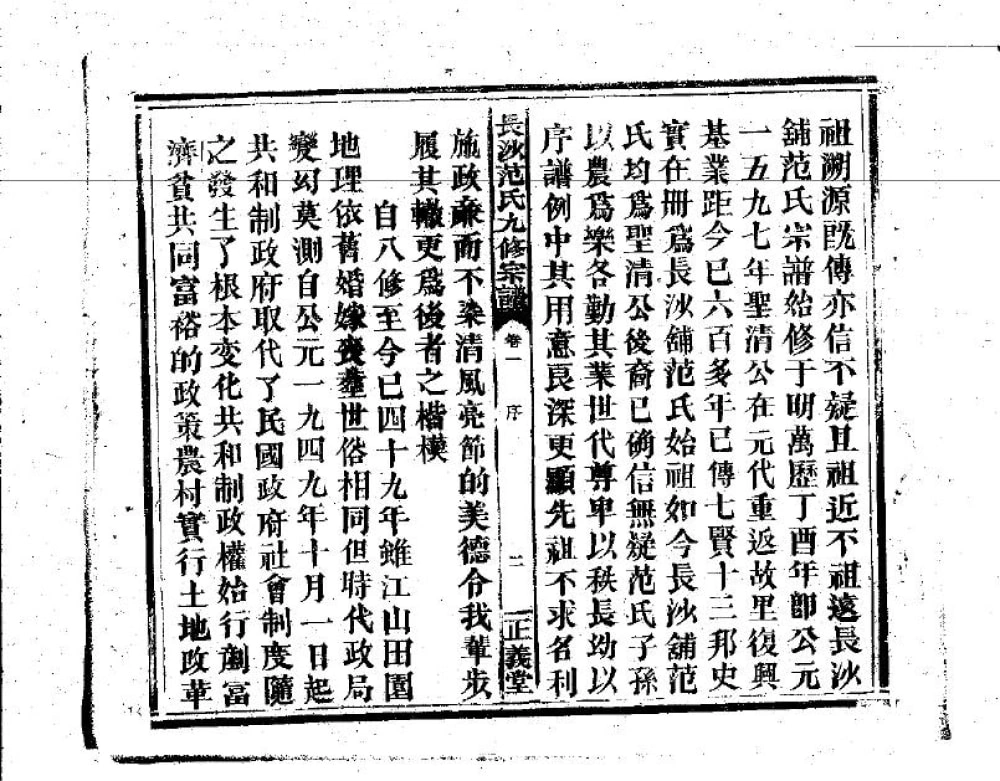 祖溯源既傳亦信不疑且祖近不祖遠長沙
舖范氏宗譜始修于明萬歷丁酉年即公元
一五九七年聖清公在元代重返故里復興
基業距今已六百多年已傳七賢十三邦史
實在冊爲長沙舖范氏始祖如今長沙舖范
氏均爲聖清公後裔已确信無疑范氏子孫
以農爲樂各勤其業世代尊卑以秩長幼以
序譜例中其用意良深更顯先祖不求名利
長沙范氏九修宗譜 卷一 序 二 正義堂
施政廉而不染清風亮節的美德令我輩步
履其轍更爲後者之楷模
自八修至今已四十九年雖江山田園
地理依舊婚嫁喪塟世俗相同但時代政局
變幻莫測自公元一九四九年十月一日起
共和制政府取代了民國政府社會制度隨
之發生了根本变化共和制政權始行劃富
濟貧共同富裕的政策農村實行土地改革